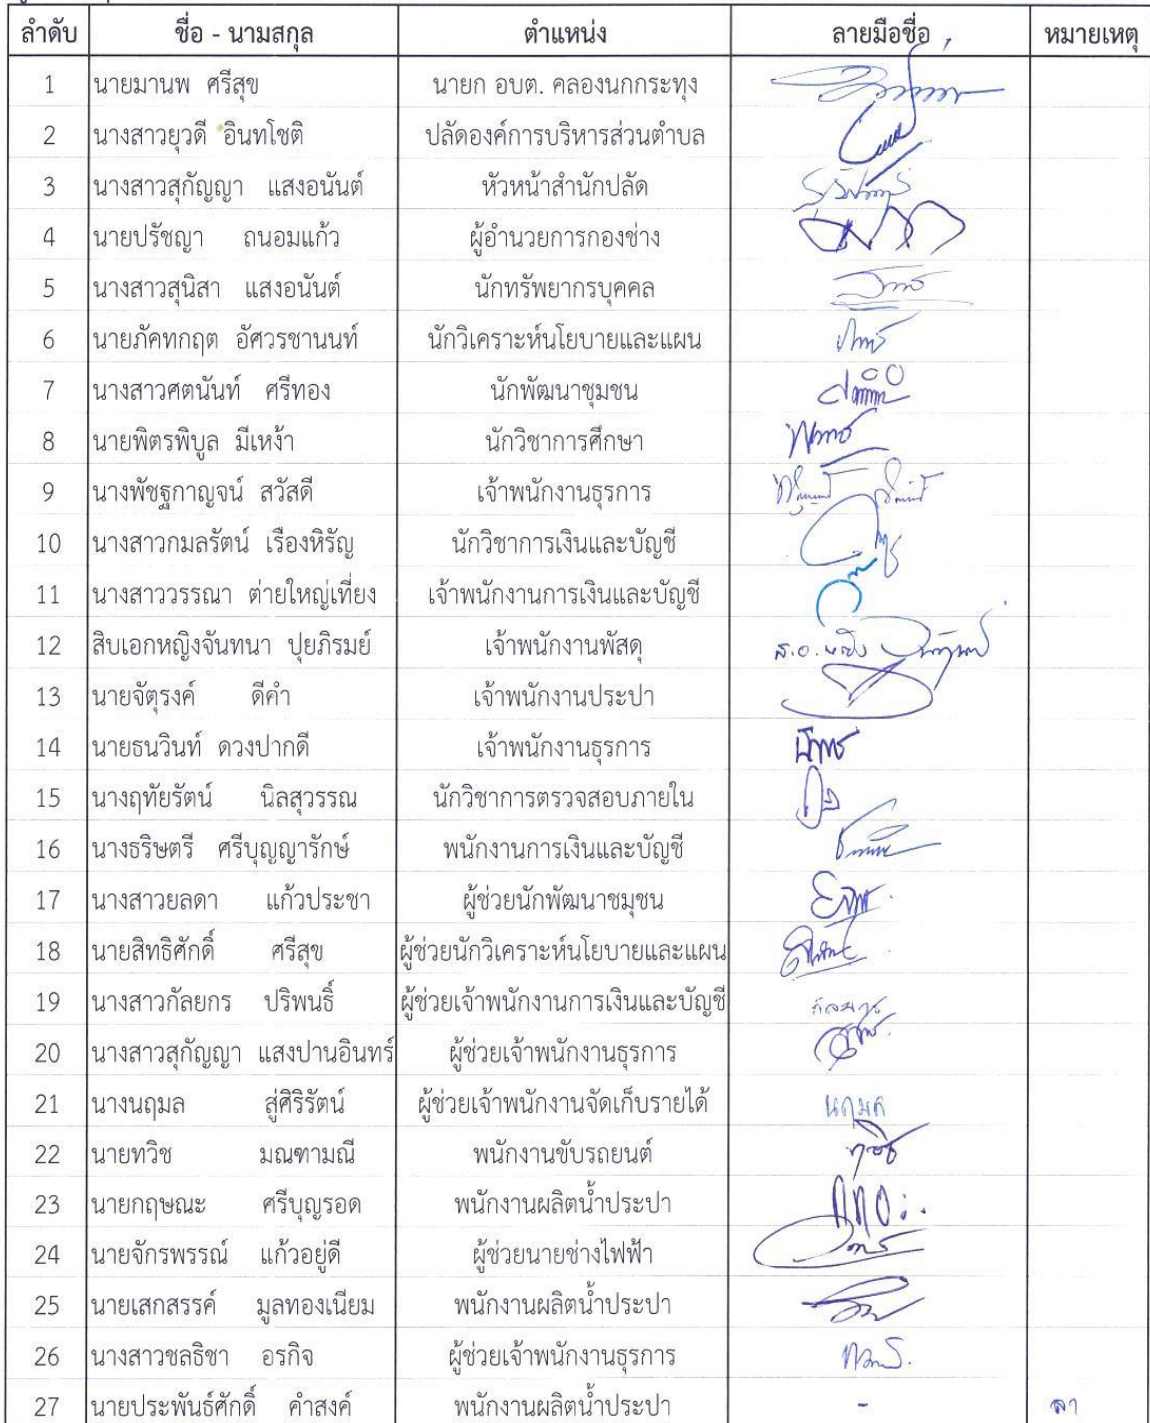 ลำดับ ชื่อ - นามสกุล ตำแหน่ง ลายมือชื่อ หมายเหตุ
1 นายมานพ ศรีสุข นายก อบต. คลองนกกระทุง
2 นางสาวยุวดี อินทโชติ ปลัดองค์การบริหารส่วนตำบล
3 นางสาวสุกัญญา แสงอนันต์ หัวหน้าสำนักปลัด
4 นายปรัชญา ถนอมแก้ว ผู้อำนวยการกองช่าง
5 นางสาวสุนิสา แสงอนันต์ นักทรัพยากรบุคคล
6 นายภัคทกฤต อัศวรชานนท์ นักวิเคราะห์นโยบายและแผน
7 นางสาวศตนันท์ ศรีทอง นักพัฒนาชุมชน
8 นายพิตรพิบูล มีเหง้า นักวิชาการศึกษา
9 นางพัชฐกาญจน์ สวัสดี เจ้าพนักงานธุรการ
10 นางสาวกมลรัตน์ เรืองหิรัญ นักวิชาการเงินและบัญชี
11 นางสาววรรณา ต่ายใหญ่เที่ยง เจ้าพนักงานการเงินและบัญชี
12 สิบเอกหญิงจันทนา ปุยภิรมย์ เจ้าพนักงานพัสดุ ส.อ.หญิง
13 นายจัตุรงค์ ดีคำ เจ้าพนักงานประปา
14 นายธนวินท์ ดวงปากดี เจ้าพนักงานธุรการ
15 นางฤทัยรัตน์ นิลสุวรรณ นักวิชาการตรวจสอบภายใน
16 นางธริษตรี ศรีบุญญารักษ์ พนักงานการเงินและบัญชี
17 นางสาวยลดา แก้วประชา ผู้ช่วยนักพัฒนาชมุชน
18 นายสิทธิศักดิ์ ศรีสุข ผู้ช่วยนักวิเคราะห์นโยบายและแผน
19 นางสาวกัลยกร ปริพนธิ์ ผู้ช่วยเจ้าพนักงานการเงินและบัญชี กัลยกร
20 นางสาวสุกัญญา แสงปานอินทร์ ผู้ช่วยเจ้าพนักงานธุรการ
21 นางนฤมล สู่ศิริรัตน์ ผู้ช่วยเจ้าพนักงานจัดเก็บรายได้ นฤมล
22 นายทวิช มณฑามณี พนักงานขับรถยนต์
23 นายกฤษณะ ศรีบุญรอด พนักงานผลิตน้ำประปา
24 นายจักรพรรณ์ แก้วอยู่ดี ผู้ช่วยนายช่างไฟฟ้า
25 นายเสกสรรค์ มูลทองเนียม พนักงานผลิตน้ำประปา
26 นางสาวชลธิชา อรกิจ ผู้ช่วยเจ้าพนักงานธุรการ
27 นายประพันธ์ศักดิ์ คำสงค์ พนักงานผลิตน้ำประปา - ลา